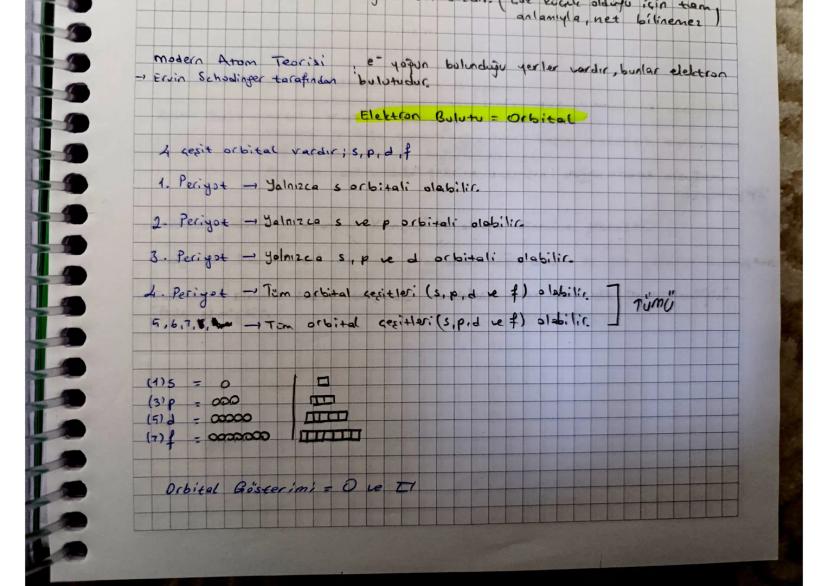 olduğu için tam,
anlamıyla, net bilinemez)
modern Atom Teorisi , e⁻ yoğun bulunduğu yerler vardır, bunlar elektron
→ Ervin Schodinger tarafından bulutudur.
Elektron Bulutu = Orbital
4 çeşit orbital vardır; s, p, d, f
1. Periyot → Yalnızca s orbitali olabilir.
2. Periyot → Yalnızca s ve p orbitali olabilir.
3. Periyot → yalnızca s, p ve d orbitali olabilir.
4. Periyot → Tüm orbital çeşitleri (s, p, d ve f) olabilir.
TÜMÜ
5, 6, 7, → Tüm orbital çeşitleri (s, p, d ve f) olabilir.
(1) s = O
(3) p = OOO
(5) d = OOOOO
(7) f = OOOOOOO
Orbital Gösterimi = O ve □